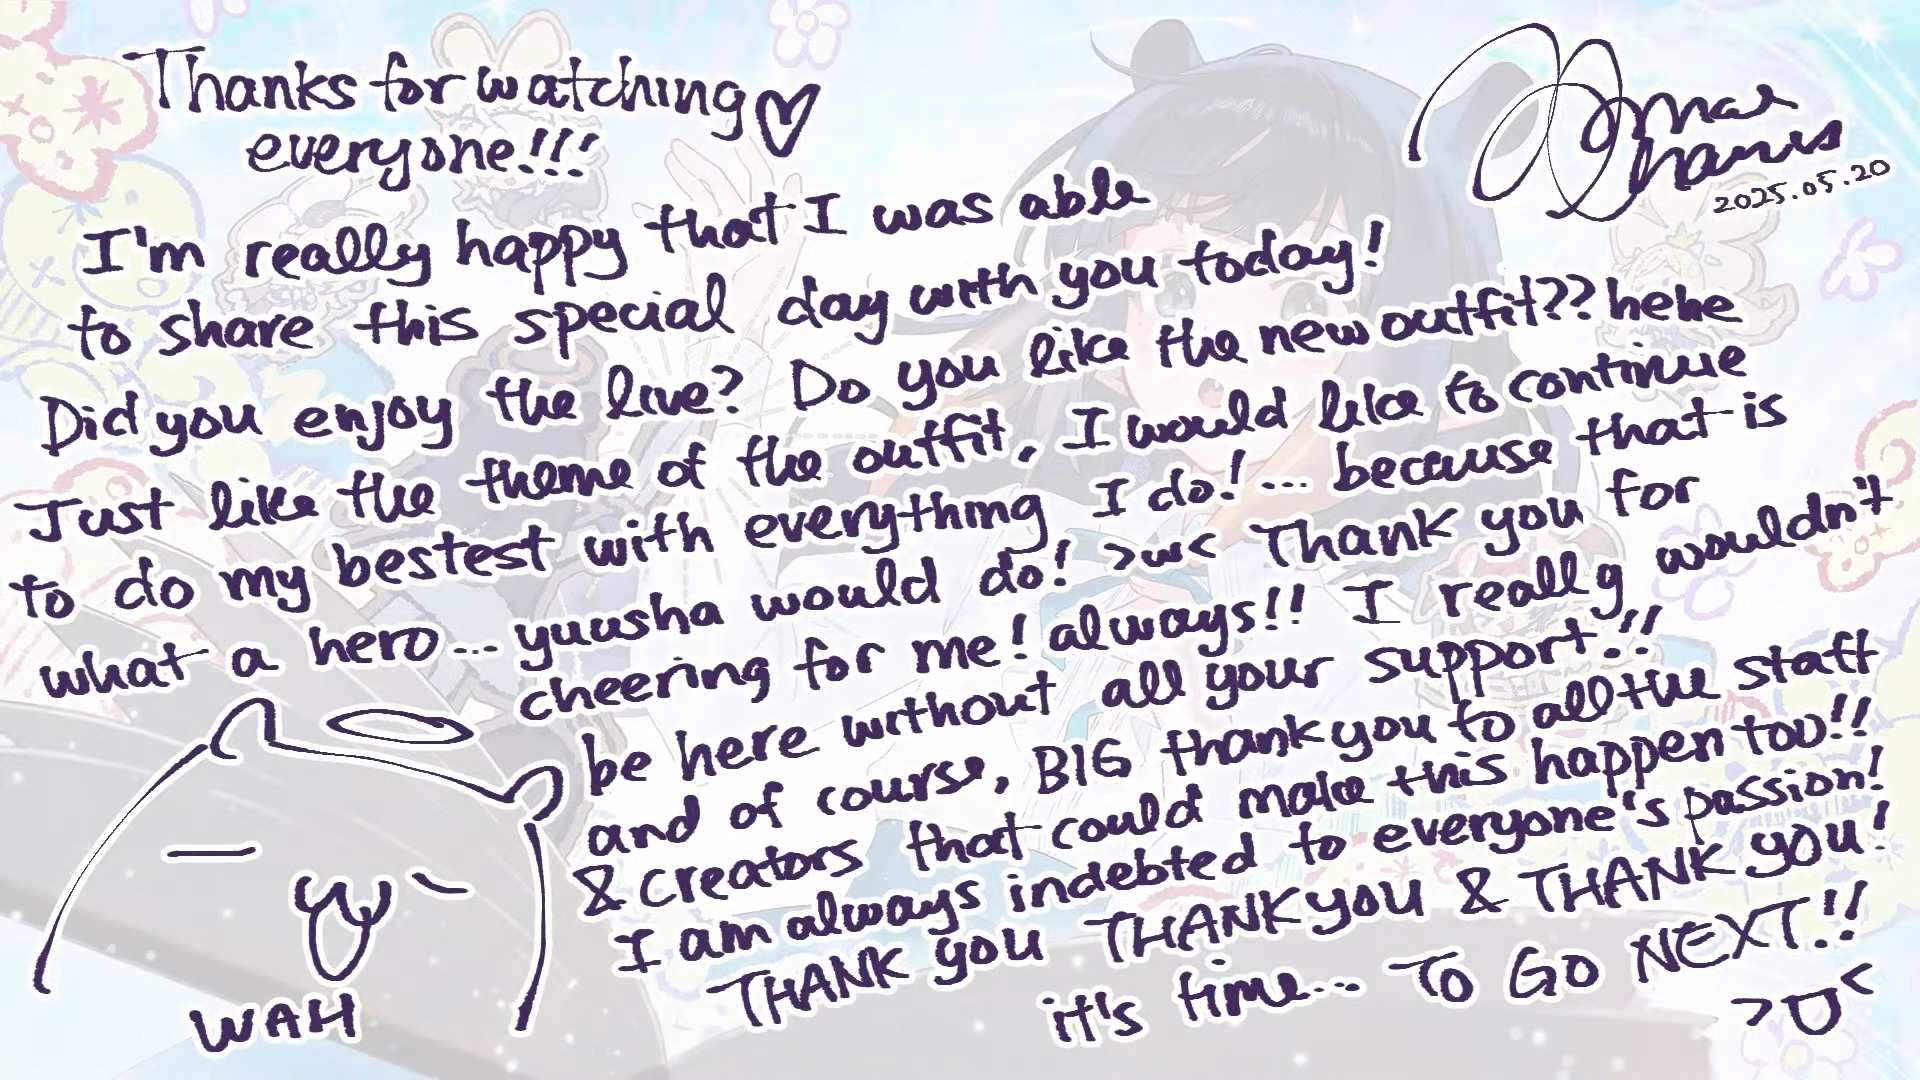 Thanks for watching ♡
everyone!!!
I'm really happy that I was able
to share this special day with you today!
Did you enjoy the live? Do you like the new outfit?? hehe
Just like the theme of the outfit, I would like to continue
to do my bestest with everything I do!... because that is
what a hero... yuusha would do! >w< Thank you for
cheering for me! always!! I really wouldn't
be here without all your support!!
and of course, BIG thank you to all the staff
& creators that could make this happen too!!
I am always indebted to everyone's passion!
THANK you THANK you & THANK you!
it's time... TO GO NEXT!!
>□<
WAH
2025.05.20